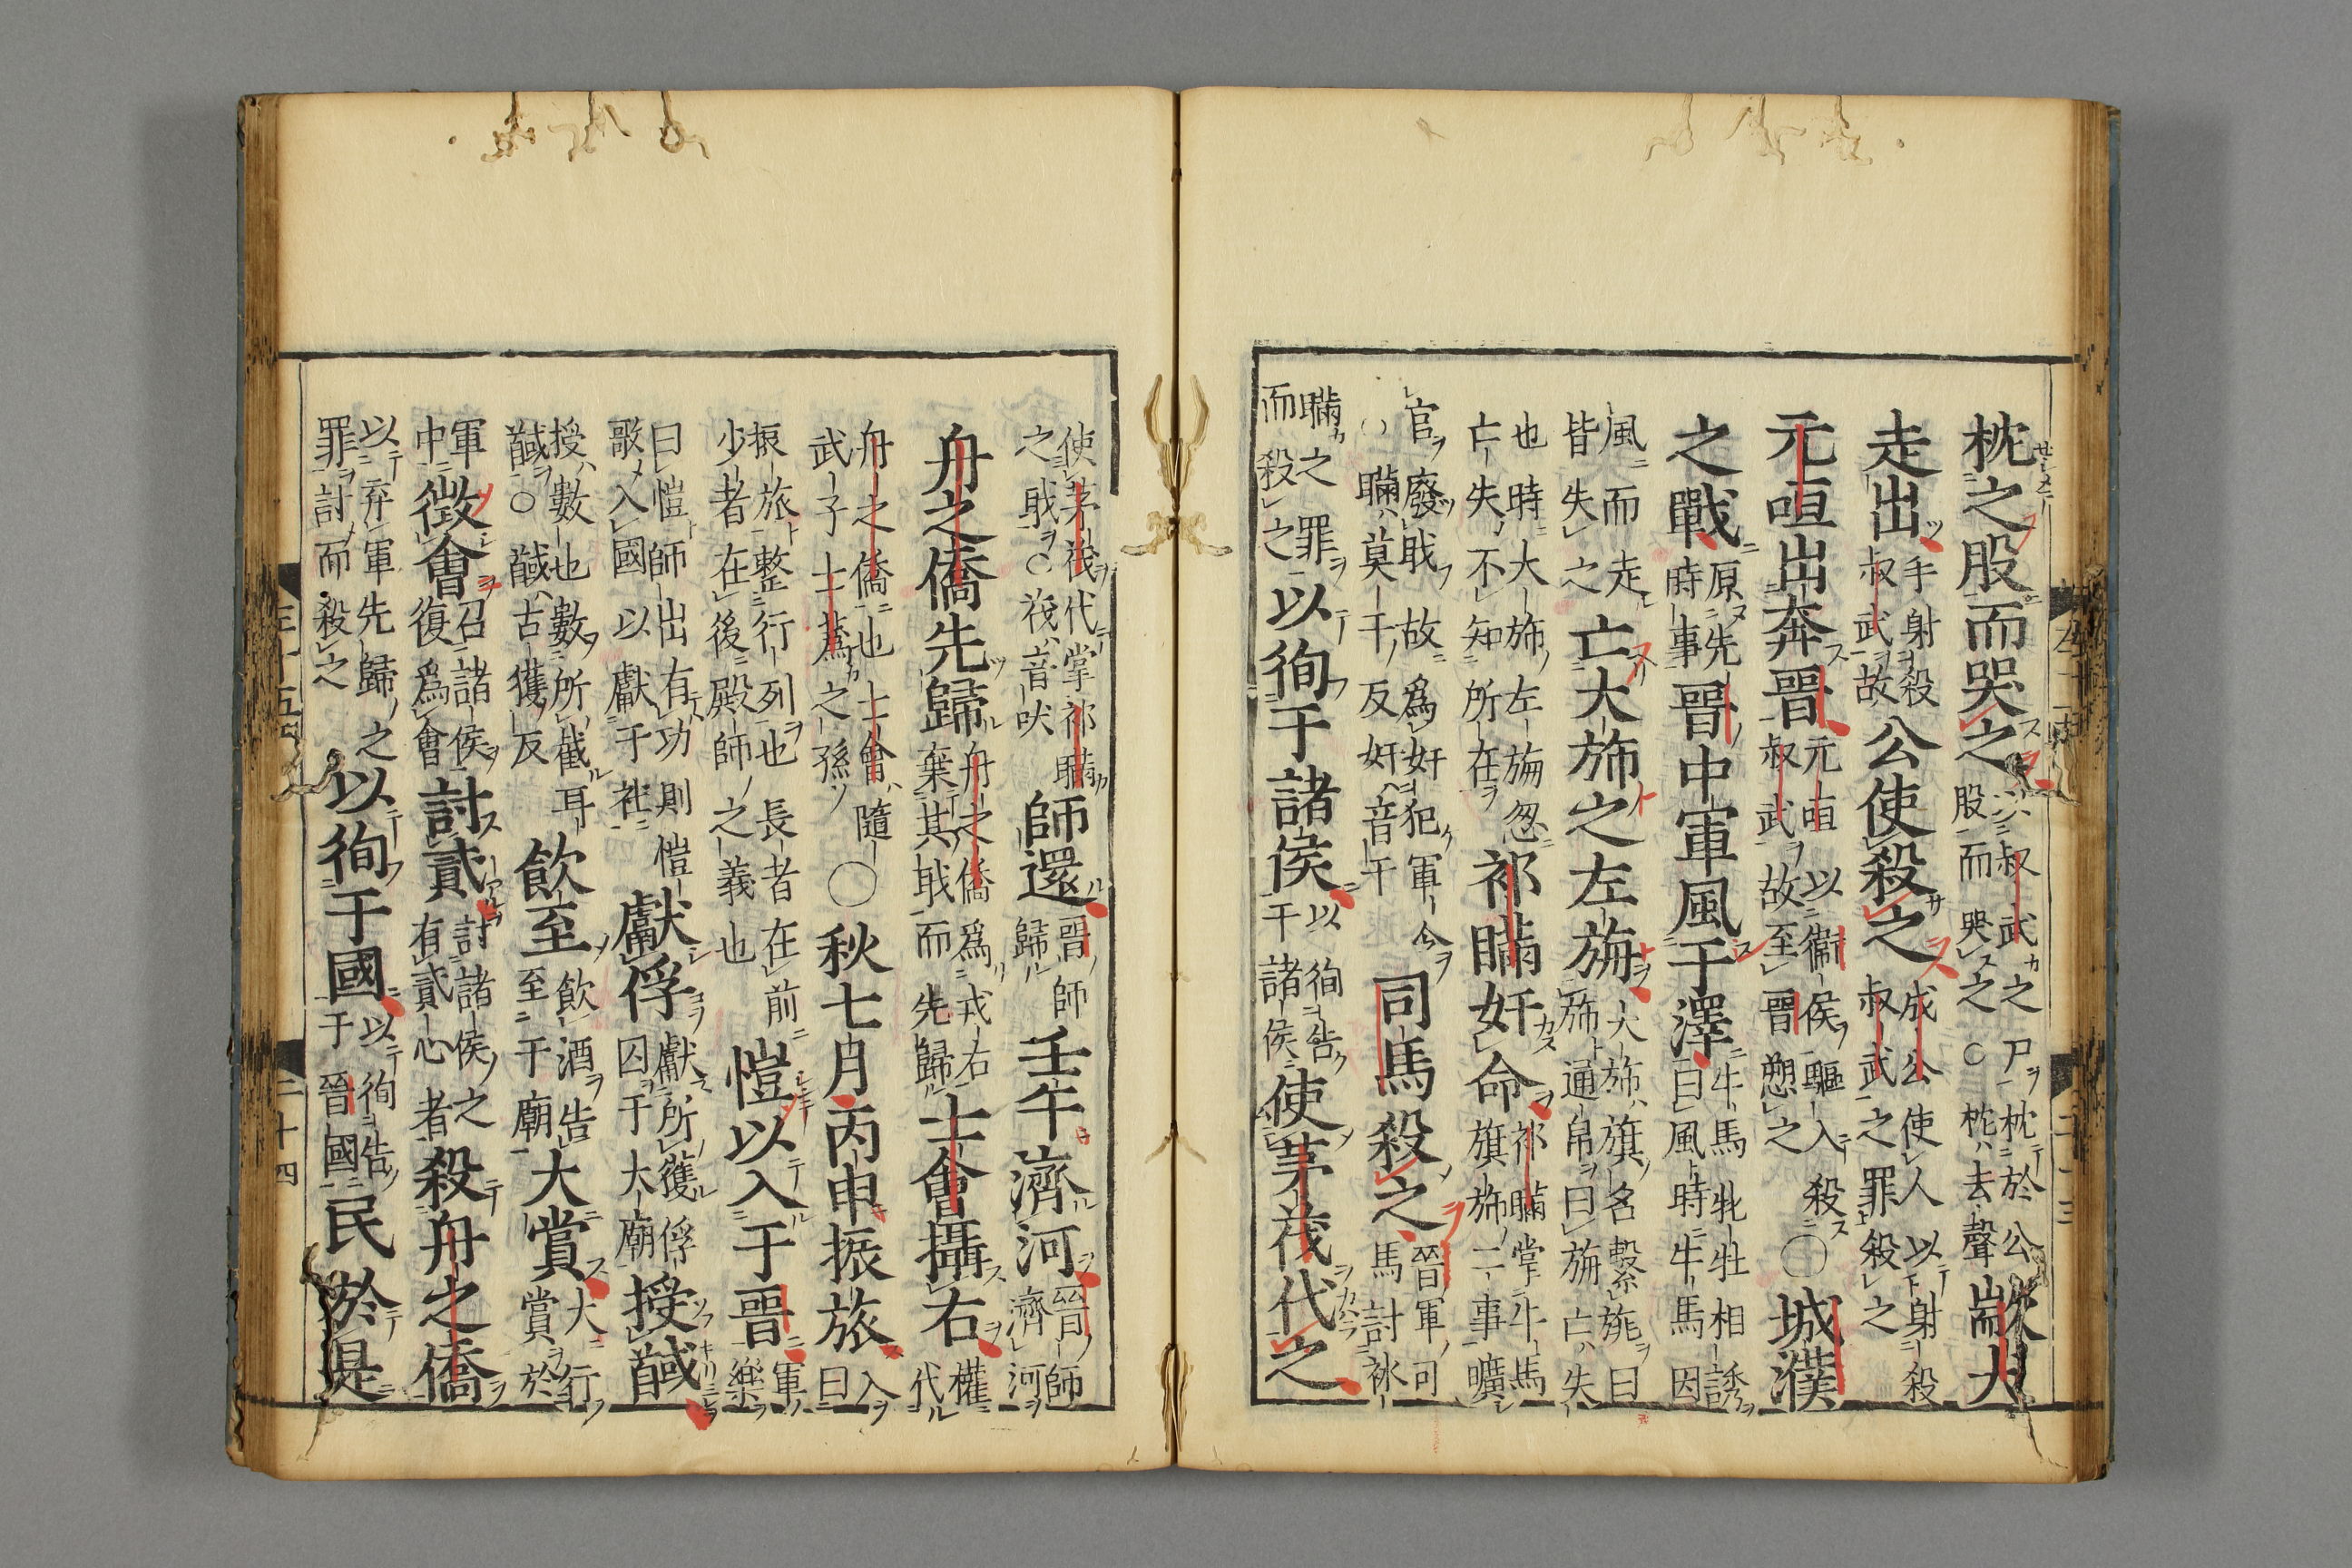 枕之股而哭之以叔武之尸枕於公股而哭之○枕去聲歂犬
走出手射殺叔武故公使殺之成公使人以射殺叔武之罪殺之
元咺出奔晉元咺以衞侯驅入殺叔武故至晉愬之○城濮
之戰原先時事晉中軍風于澤牛馬牝牡相誘曰風時牛馬因
風而走皆失之亡大旆之左旃大旆旗名繫旐曰旆通帛曰旃亡失
也時大旆左旃忽亡失不知所在祁瞞奸命祁瞞掌牛馬旗旆二事曠
官廢戝故爲奸犯軍令○瞞莫干反奸音干司馬殺之晉軍司馬討祁
瞞之罪而殺之以徇于諸侯以徇告于諸侯使茅茷代之
使茅茷代掌祁瞞之戝○茷音吠師還晉師歸壬午濟河晉師濟河
舟之僑先歸舟之僑爲戎右棄其戝而先歸士會攝右權代
舟之僑也士會隨武子士蔿之孫○秋七月丙申振旅入曰
振旅整行列也長者在前少者在後殿師之義也愷以入于晉軍樂
曰愷師出有功則愷歌入國以獻于社獻俘獻所獲俘囚于大廟授馘
授數也數所截耳馘○馘古獲反飲至飲酒告至于廟大賞大行賞於
軍中徵會召諸侯復爲會討貳討諸侯之有貳心者殺舟之僑
以弃軍先歸之罪討而殺之以徇于國以徇告于晉國民於是
二十四